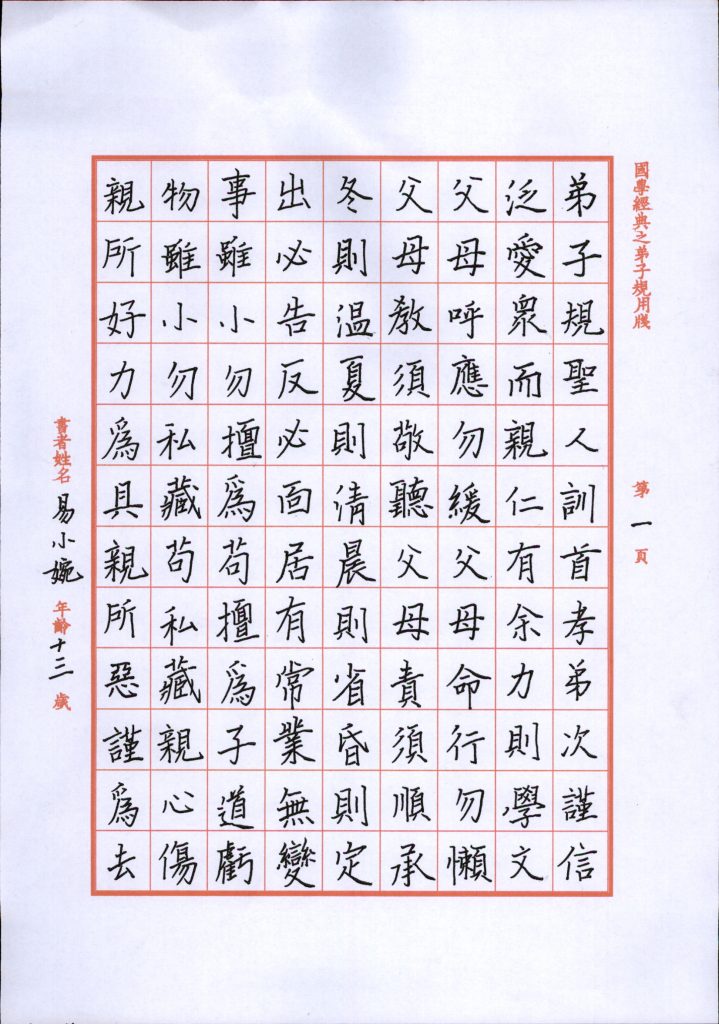 國學經典之弟子規用牋
第一頁
弟子規聖人訓首孝弟次謹信
泛愛衆而親仁有余力則學文
父母呼應勿緩父母命行勿懶
父母教須敬聽父母責須順承
冬則温夏則凊晨則省昏則定
出必告反必面居有常業無變
事雖小勿擅爲苟擅爲子道虧
物雖小勿私藏苟私藏親心傷
親所好力爲具親所惡謹爲去
書者姓名易小婉年齡十三歲